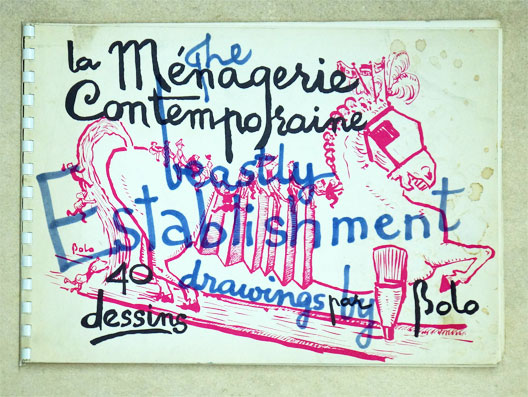 la Ménagerie
Contemporaine
The
beastly
Establishment
drawings by
40
dessins
par Bolo
Bolo